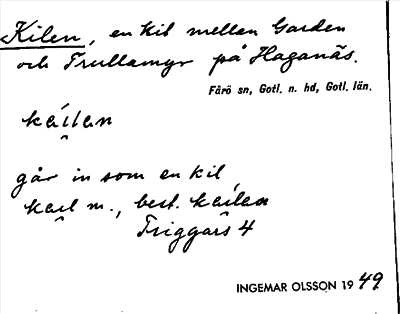 Kilen, en kil mellan Garden
och Trullamyr på Haganäs.
Fårö sn, Gotl. n. hd, Gotl. län.
går in som en kil
m., best.
Triggars 4
INGEMAR OLSSON 1949